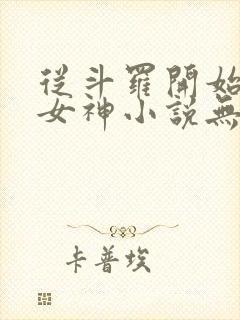 從斗羅開始
女神小説無
卡普埃